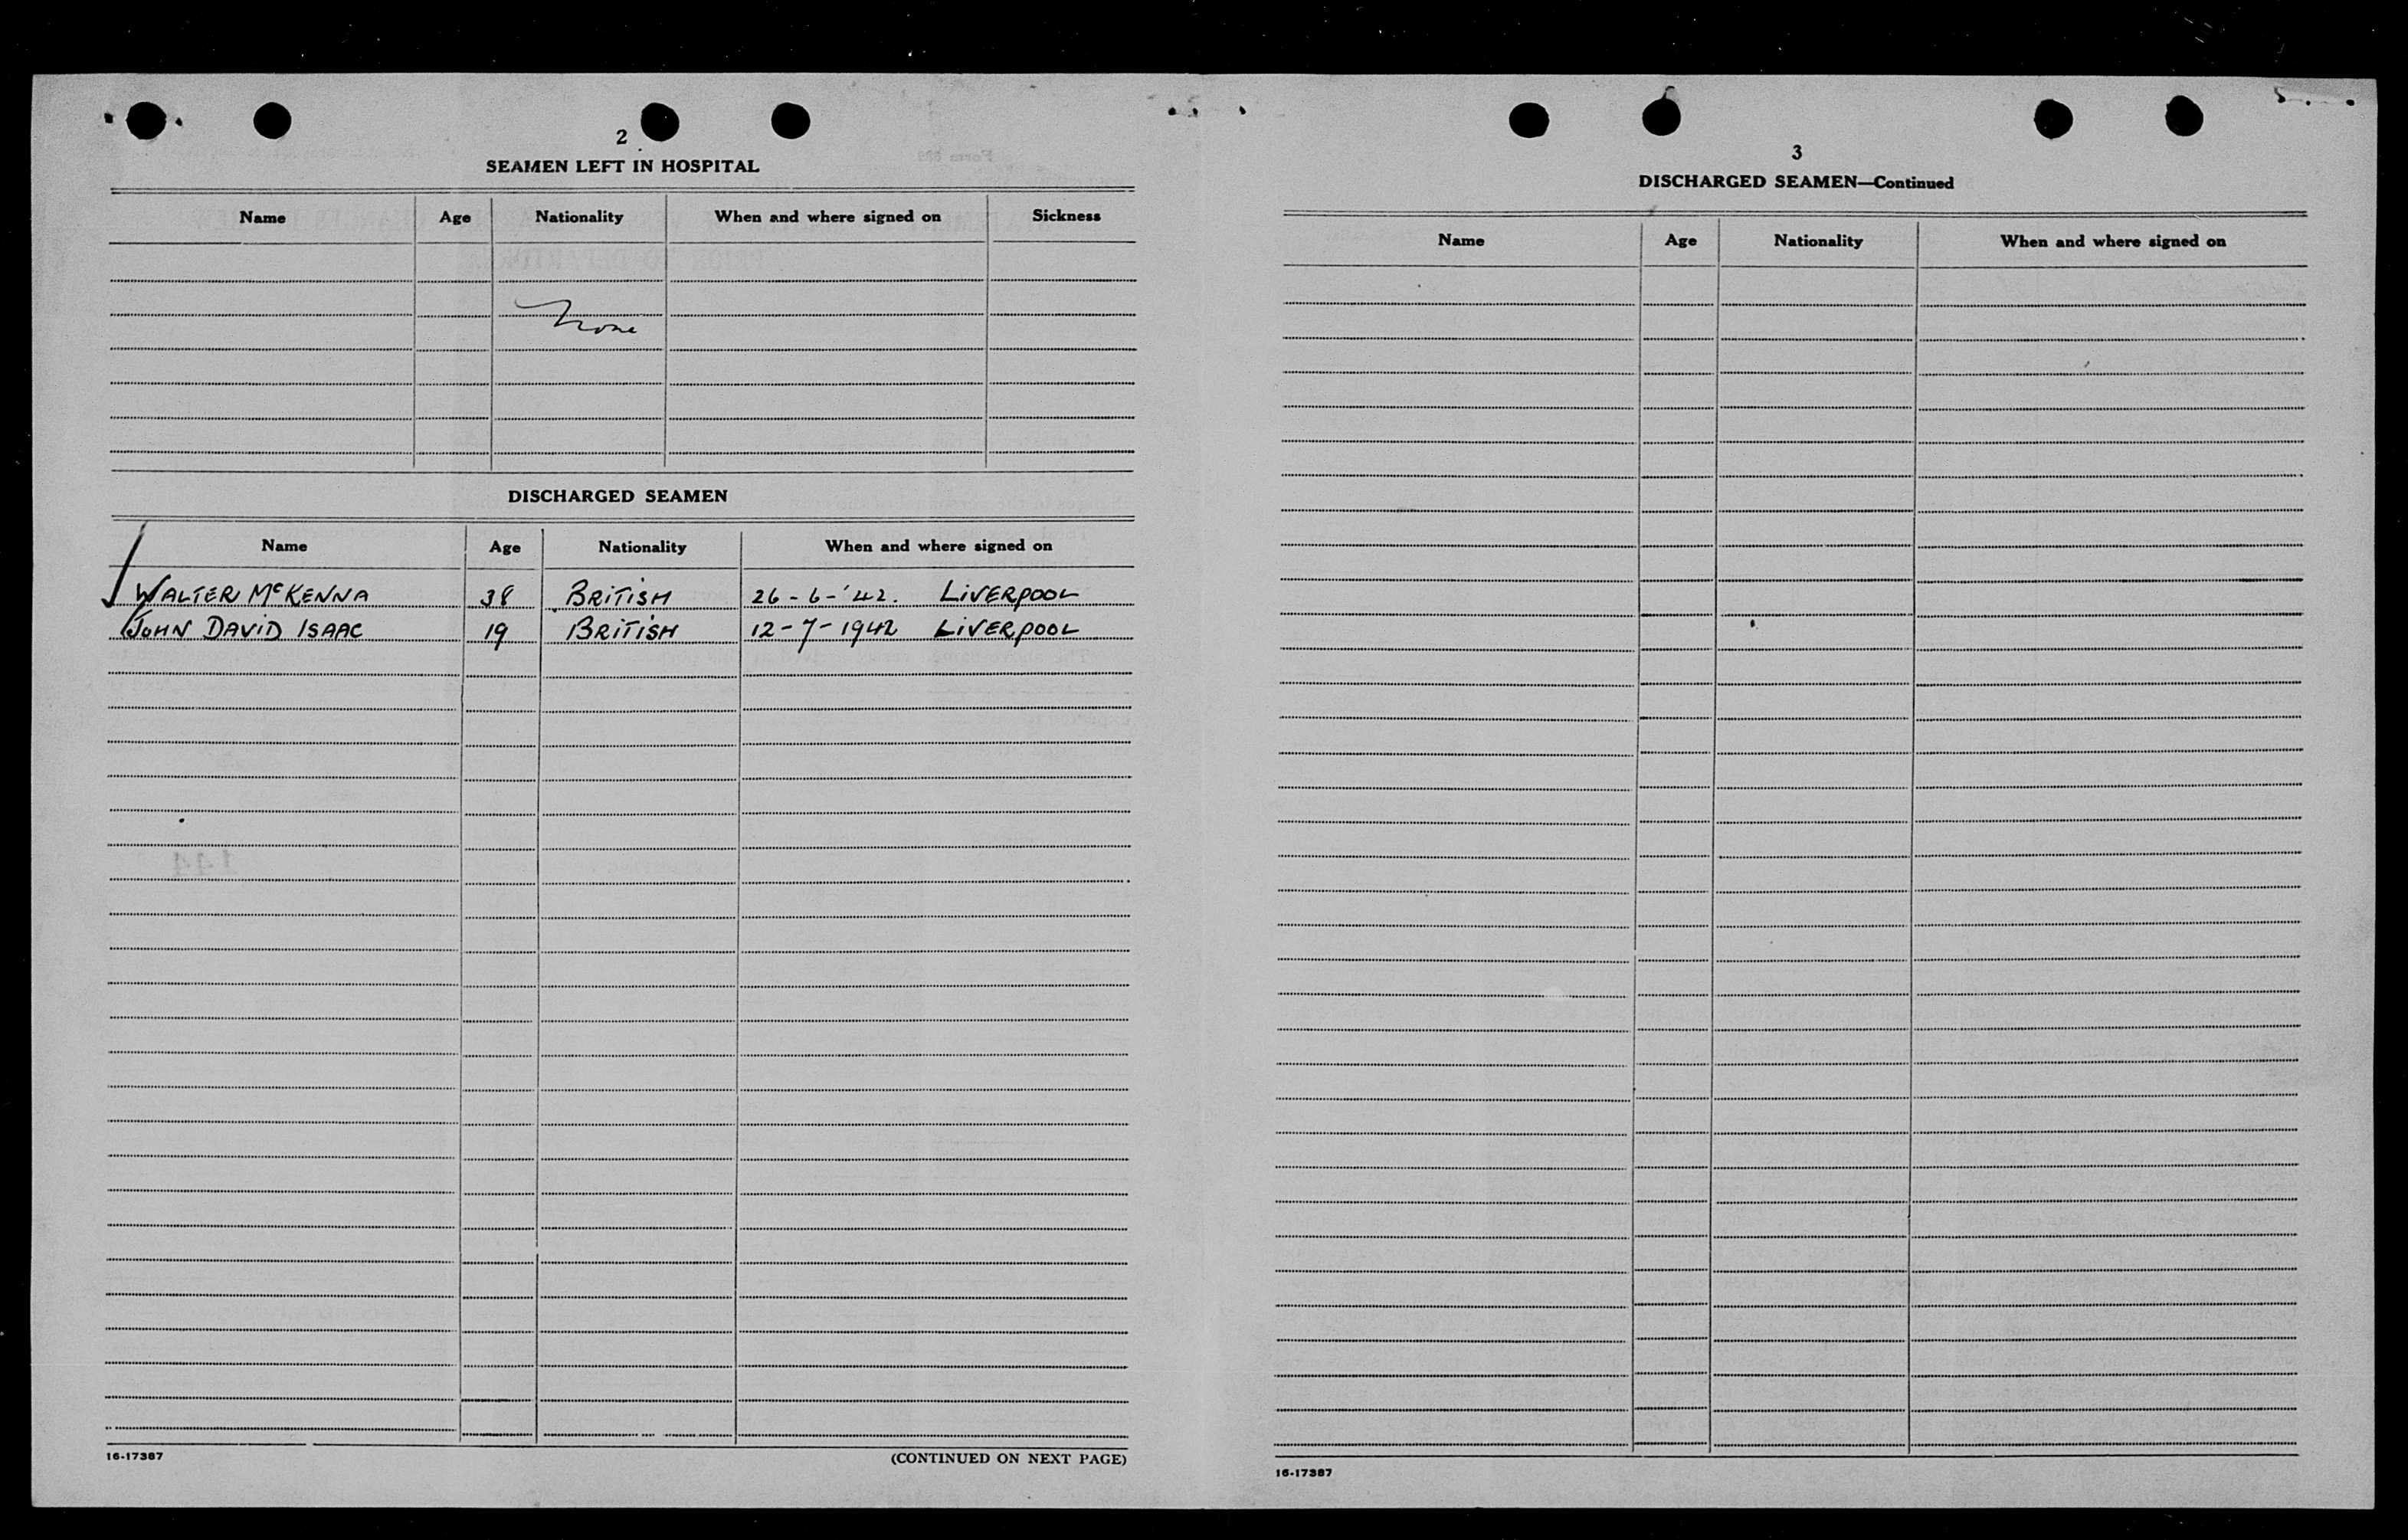 2
SEAMEN LEFT IN HOSPITAL
Name Age Nationality When and where signed on Sickness
None
DISCHARGED SEAMEN
Name Age Nationality When and where signed on
WALTER McKENNA 38 BRITISH 26-6-'42. LIVERPOOL
JOHN DAVID ISAAC 19 BRITISH 12-7-1942 LIVERPOOL
16-17387 (CONTINUED ON NEXT PAGE)
3
DISCHARGED SEAMEN—Continued
Name Age Nationality When and where signed on
16-17387